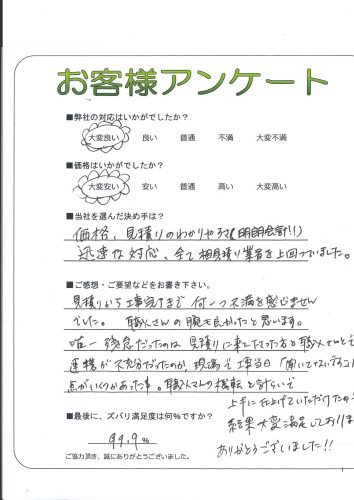 お客様アンケート
■弊社の対応はいかがでしたか？
大変良い 良い 普通 不満 大変不満
■価格はいかがでしたか？
大変安い 安い 普通 高い 大変高い
■当社を選んだ決め手は？
価格、見積りのわかりやすさ(明朗会計!!)
迅速な対応、全て相見積り業者を上回っていました。
■ご感想・ご要望などをお書き下さい。
見積りから工事完了まで何一つ不満を感じません
でした。職人さんの腕も良かったと思います。
唯一残念だったのは見積りに来て下さった方と職人さんとで
連携が不充分だったのか、現場で工事当日「聞いてないです」
点がいくつかあった事。職人さんの機転と計らいで
上手に仕上げていただけた
結果大変満足しており
ありがとうございました!!
■最後に、ズバリ満足度は何％ですか？
99.9%
ご協力頂き、誠にありがとうございました。